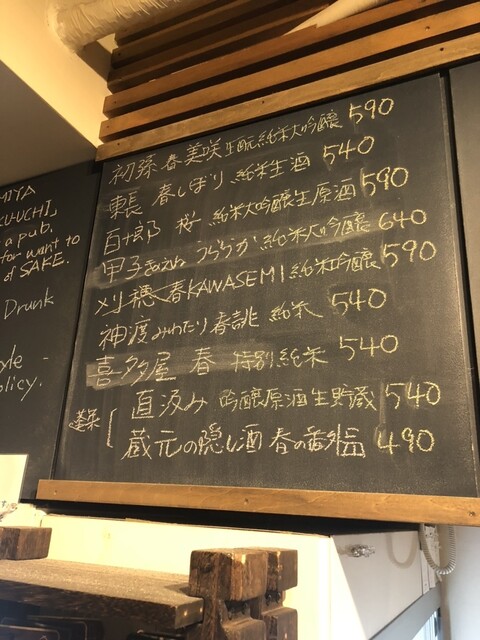 MIYA
KU-UCHI」
a pub.
for want to
of SAKE.
Drunk
yle -
olicy.
初孫 春 美咲 生酛純米大吟醸 590
東長 春しぼり 純米生酒 540
百十郎 桜 純米大吟醸生原酒 590
甲子きのえね うららか 純米大吟醸 640
刈穂 春KAWASEMI 純米吟醸 590
神渡みわたり 春誂 純米 540
喜多屋 春 特別純米 540
蓬莱
直汲み 吟醸原酒生貯蔵 540
蔵元の隠し酒 春の番外品 490